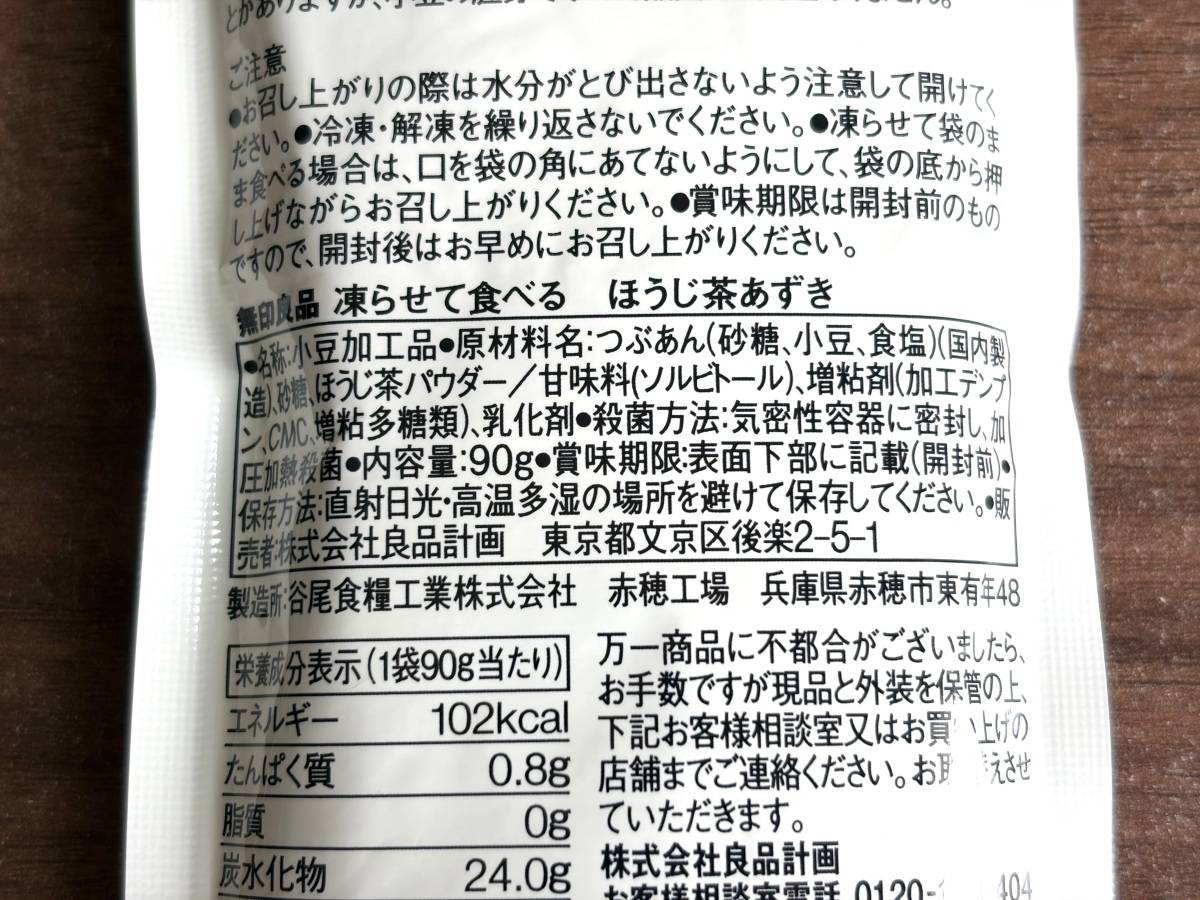 ご注意
●お召し上がりの際は水分がとび出さないよう注意して開けてく
ださい。●冷凍・解凍を繰り返さないでください。●凍らせて袋のま
ま食べる場合は、口を袋の角にあてないようにして、袋の底から押
し上げながらお召し上がりください。●賞味期限は開封前のもの
ですので、開封後はお早めにお召し上がりください。
無印良品 凍らせて食べる ほうじ茶あずき
●名称:小豆加工品●原材料名:つぶあん(砂糖、小豆、食塩)(国内製
造)、砂糖、ほうじ茶パウダー／甘味料(ソルビトール)、増粘剤(加工デンプ
ン、CMC、増粘多糖類)、乳化剤●殺菌方法:気密性容器に密封し、加
圧加熱殺菌●内容量:90g●賞味期限:表面下部に記載(開封前)●
保存方法:直射日光・高温多湿の場所を避けて保存してください。●販
売者:株式会社良品計画 東京都文京区後楽2-5-1
製造所:谷尾食糧工業株式会社 赤穂工場 兵庫県赤穂市東有年48
栄養成分表示(1袋90g当たり)
エネルギー 102kcal
たんぱく質 0.8g
脂質 0g
炭水化物 24.0g
万一商品に不都合がございましたら、
お手数ですが現品と外装を保管の上、
下記お客様相談室又はお買い上げの
店舗までご連絡ください。お取替えさせ
ていただきます。
株式会社良品計画
お客様相談室電話 0120-